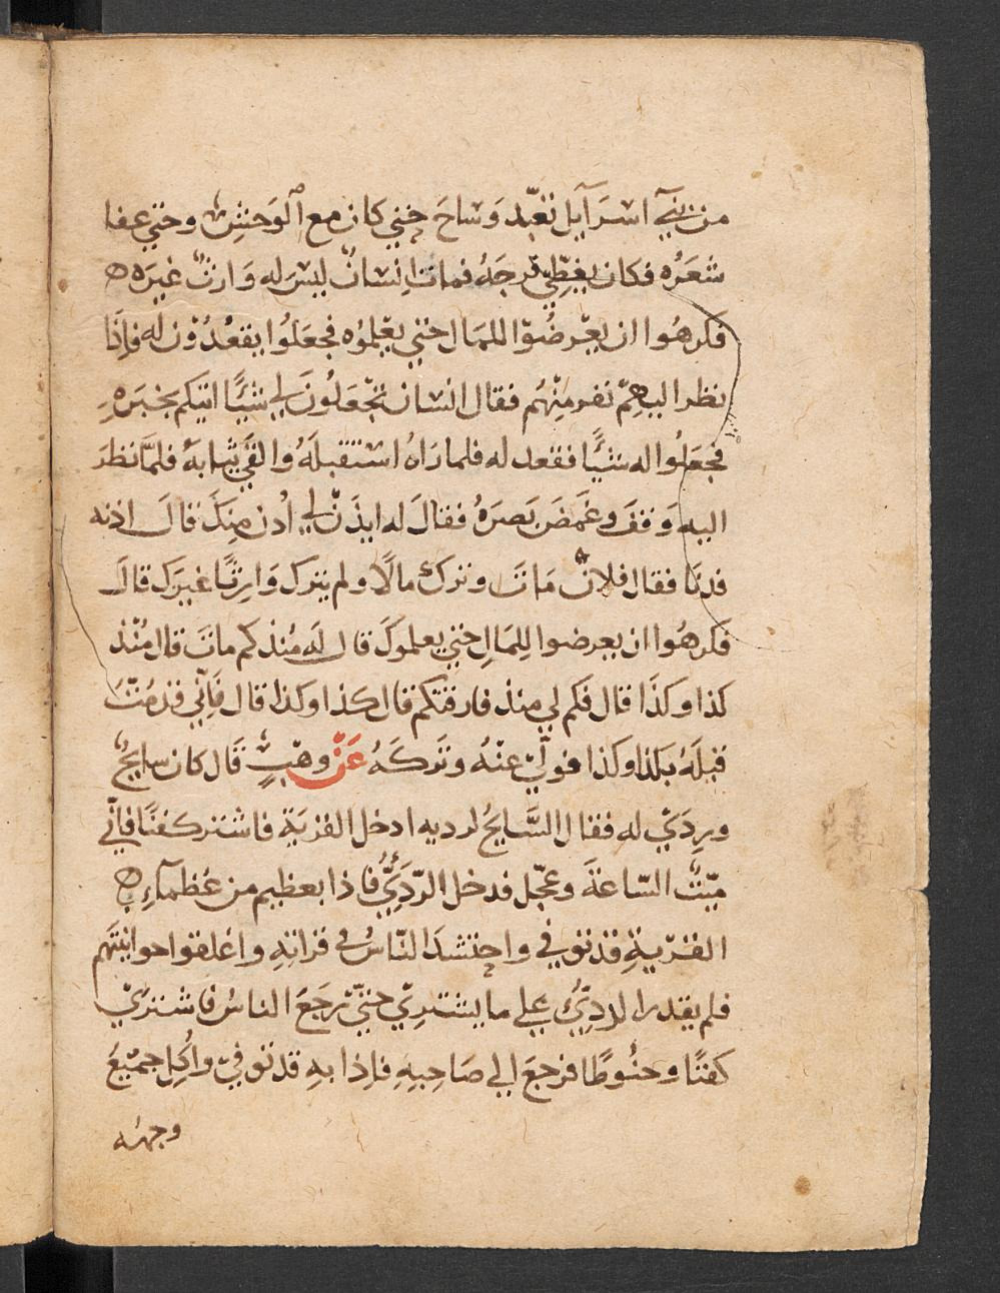 من بَنِيٓ اسْرَآيل تعَبّد وَسَاحَ حَتي كان مع الوَحشِ وحتي عفا
شعَرُه فكان يغطِّي فرجَهُ فمات اِنسَانٌ ليسَ له وَارثٌ غيرَه
فكرهُوا ان يعْرضُوا للمَال حتي يعْلموُه فجعَلوُا يقعُدُون له فاِذَا
نظر اليهِمْ نفر مِنْهُم فقال انسان تجْعَلوُنَ لي شيًا اتيكم بخبَرِه
فجعَلُوا له شيًا فقعد له فلما رَاهُ اسْتقبلَهُ والقَي ثيابهُ فلمَّا نظرَ
اليه وَقفَ وغمضَ بَصرَهُ فقالَ له ايذَنْ لي أدْن مِنكَ قالَ ادنه
فدنَا فقال فلانٌ مَاتَ وتركَ مالًا ولم يترك وَارِثًا غيرَك قالَ
فكرهُوا ان يعرضوا لِلمَالِ حتي يعلموكَ قال له مُنذ كم ماتَ قال مُنْذ
كذا وكذَا قال فَكم لي منذ فارقتكم قال كذا وكذا قال فَاِنِّي قدْ مُتّ
قبلَهُ بكذا وكذا فولّيَ عنْهُ وتَركَهُ عَنْ وهْبٍ قَال كان سايحٌ
ورِدَيْ له فقال السَّايحُ لرديه ادخل القريَةِ فاشتر كفنًا فاِنِّي
ميّتٌ السَّاعةَ وعجّل فدخل الرّدَيُّ فاذا بعظيمٍ من عُظمآءِ
القرْيةِ قد توفي واحتشدَ النّاسُ في قراتِهِ واغلقوا حوانيتَهم
فلم يقدر الرديُّ علي ما يشتري حتيّ رجَعَ الناسُ فاشترَيْ
كفنًا وحنُوطًا فرجعَ الي صَاحِبِهِ فاِذا بهِ قد توفيْ واُكِل جميْعُ
وجهه